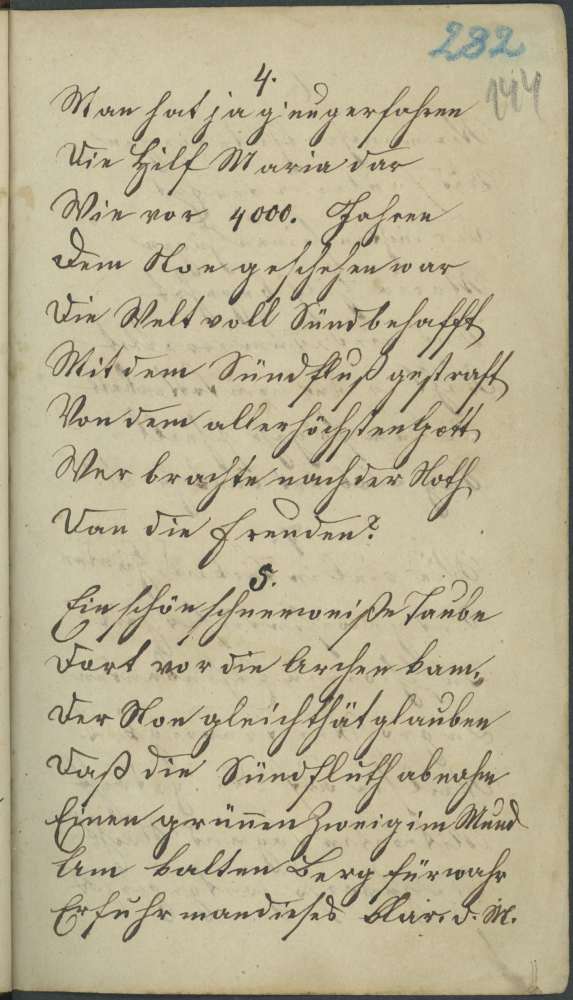 232
144
4.
Man hat ja g'nug erfahren
Die Hilf Maria dar
Wie vor 4000. Jahren
Dem Noe geschehen war
Die Welt voll Sünd behafft
Mit dem Sündfluß gestraft
Von dem allerhöchsten Gott
Wer brachte nach der Noth
Dan die Freuden?
5.
Ein schön schneeweiße Taube
Dort vor die Archen kam,
Der Noe gleich thät glauben
Daß die Sündfluth abnahm
Einen grünen Zweig im Mund
Am kalten Berg fürwahr
Erfuhr man dieses klar. d. M.